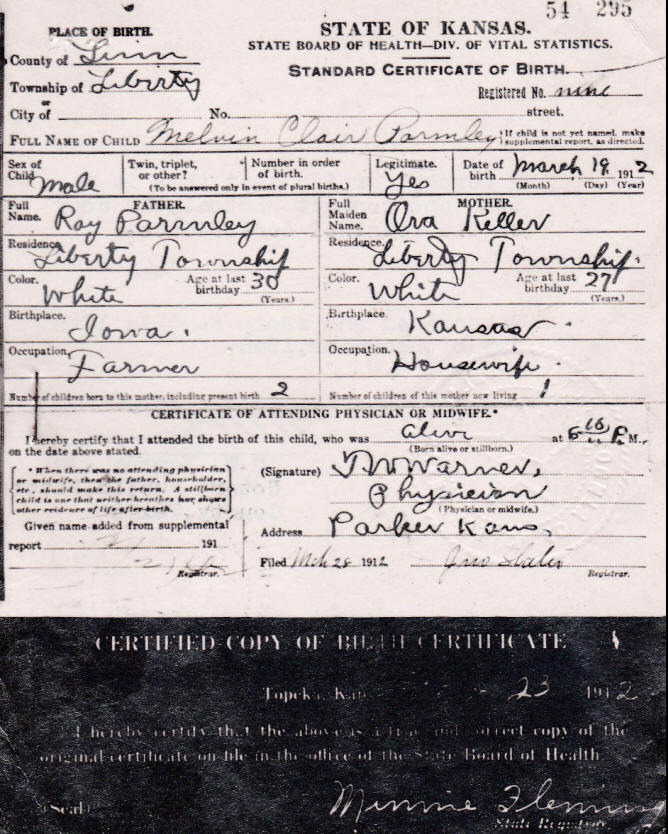 54 295
PLACE OF BIRTH. STATE OF KANSAS.
County of Linn STATE BOARD OF HEALTH—DIV. OF VITAL STATISTICS.
Township of Liberty STANDARD CERTIFICATE OF BIRTH.
or Registered No. nine
City of No. street.
FULL NAME OF CHILD Melvin Clair Parmley If child is not yet named, make supplemental report, as directed.
Sex of Child Male Twin, triplet, or other? Number in order of birth. Legitimate. Yes Date of birth March 19, 1912
(To be answered only in event of plural births.) (Month) (Day) (Year)
FATHER. MOTHER.
Full Name. Ray Parmley Full Maiden Name. Ora Keller
Residence. Liberty Township Residence. Liberty Township.
Color. White Age at last birthday 30 Color. White Age at last birthday 27
(Years.) (Years.)
Birthplace. Iowa. Birthplace. Kansas.
Occupation. Farmer Occupation. Housewife.
Number of children born to this mother, including present birth 2 Number of children of this mother now living 1
CERTIFICATE OF ATTENDING PHYSICIAN OR MIDWIFE.*
I hereby certify that I attended the birth of this child, who was alive at P. M.,
on the date above stated. (Born alive or stillborn.)
* When there was no attending physician
or midwife, then the father, householder,
etc., should make this return. A stillborn
child is one that neither breathes nor shows
other evidence of life after birth.
(Signature) Warner,
Physician
(Physician or midwife.)
Given name added from supplemental Address Parker Kans.
report 191
Registrar.
Filed Mch 28 1912 Jno Slater
Registrar.
CERTIFIED COPY OF BIRTH CERTIFICATE
Topeka, Kan 23 1912
I hereby certify that the above is a true and correct copy of the
original certificate on file in the office of the State Board of Health.
(Seal) Minnie Fleming
State Registrar